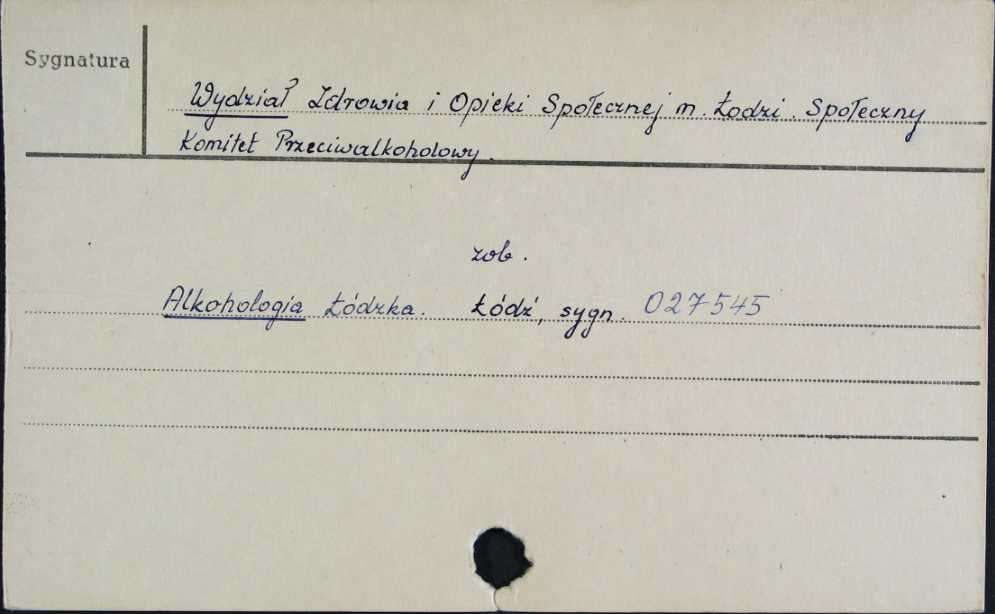 Sygnatura
Wydział Zdrowia i Opieki Społecznej m. Łodzi. Społeczny
Komitet Przeciwalkoholowy.
zob.
Alkohologia Łódzka. Łódź, sygn. 027545